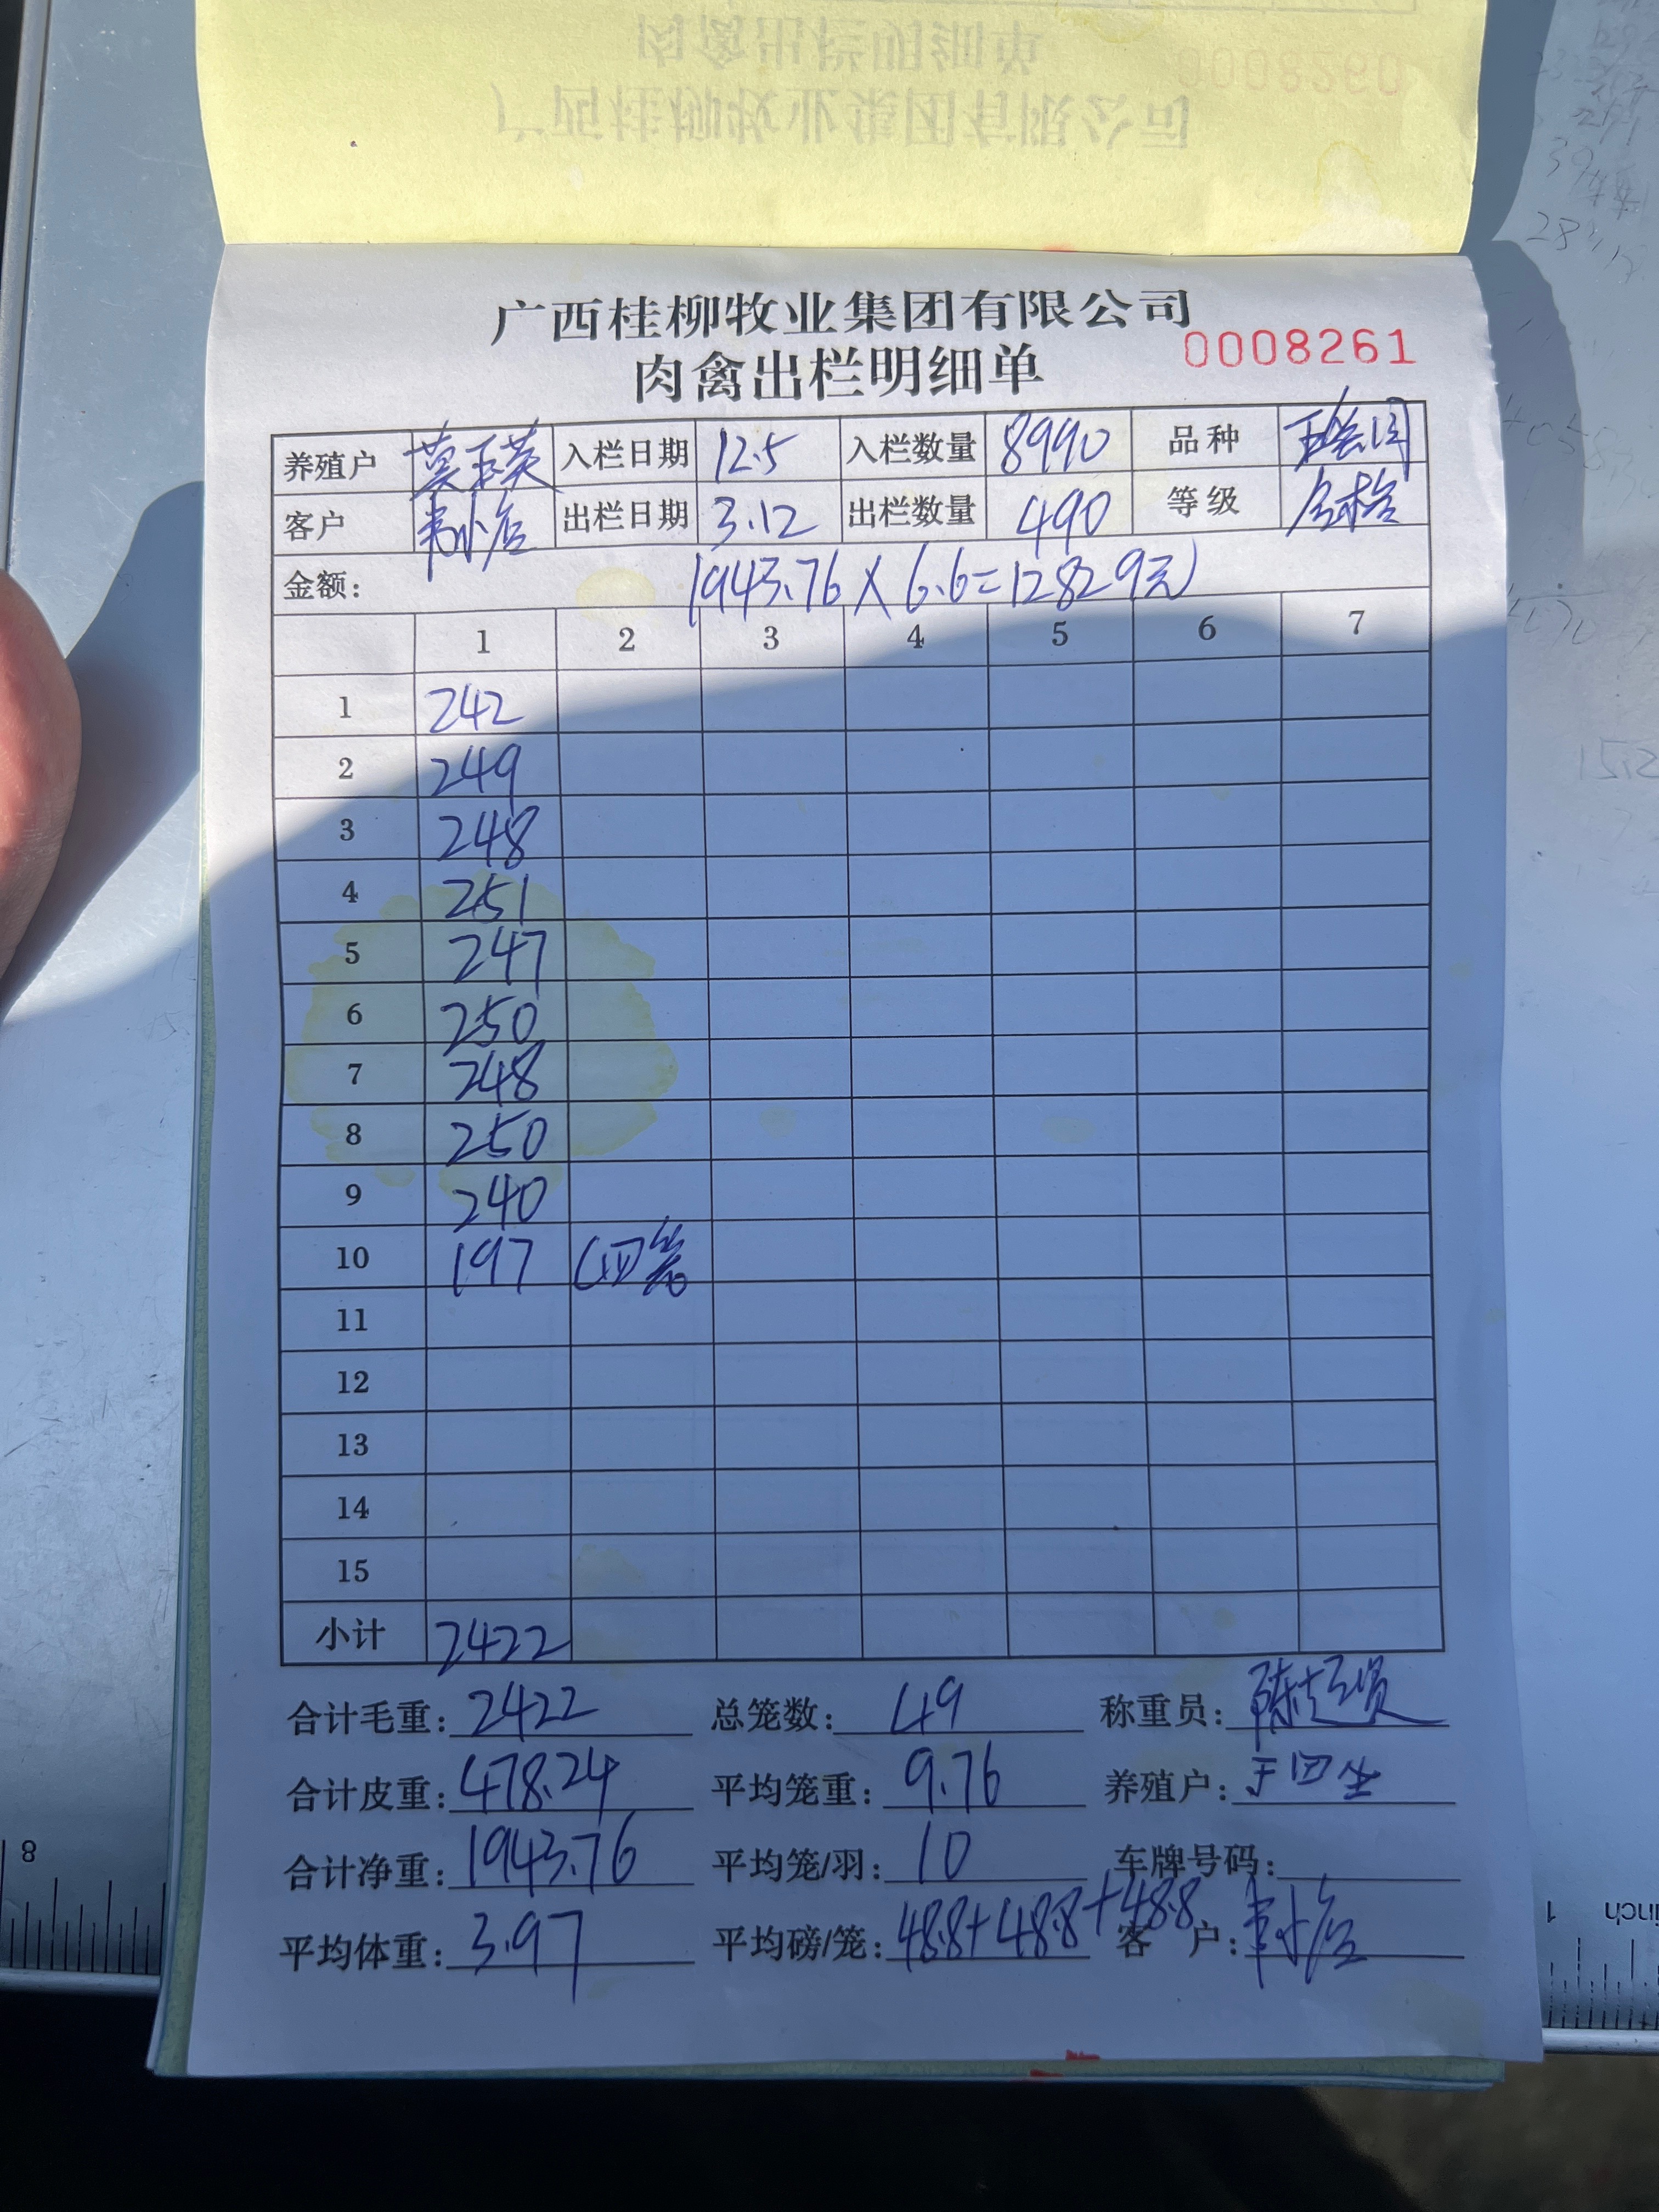 广西桂柳牧业集团有限公司
肉禽出栏明细单 0008261
养殖户 莫玉英 入栏日期 12.5 入栏数量 8990 品种
客户 出栏日期 3.12 出栏数量 490 等级 合格
金额: 1943.76 X 6.6=12829元
1 2 3 4 5 6 7
1 242
2 249
3 248
4 251
5 247
6 250
7 248
8 250
9 240
10 197 (四笼
11
12
13
14
15
小计 2422
合计毛重: 2422 总笼数: 49 称重员:
合计皮重: 478.24 平均笼重: 9.76 养殖户:
合计净重: 1943.76 平均笼/羽: 10 车牌号码:
平均体重: 3.97 平均磅/笼: 48.8+48.8+48.8 客户: